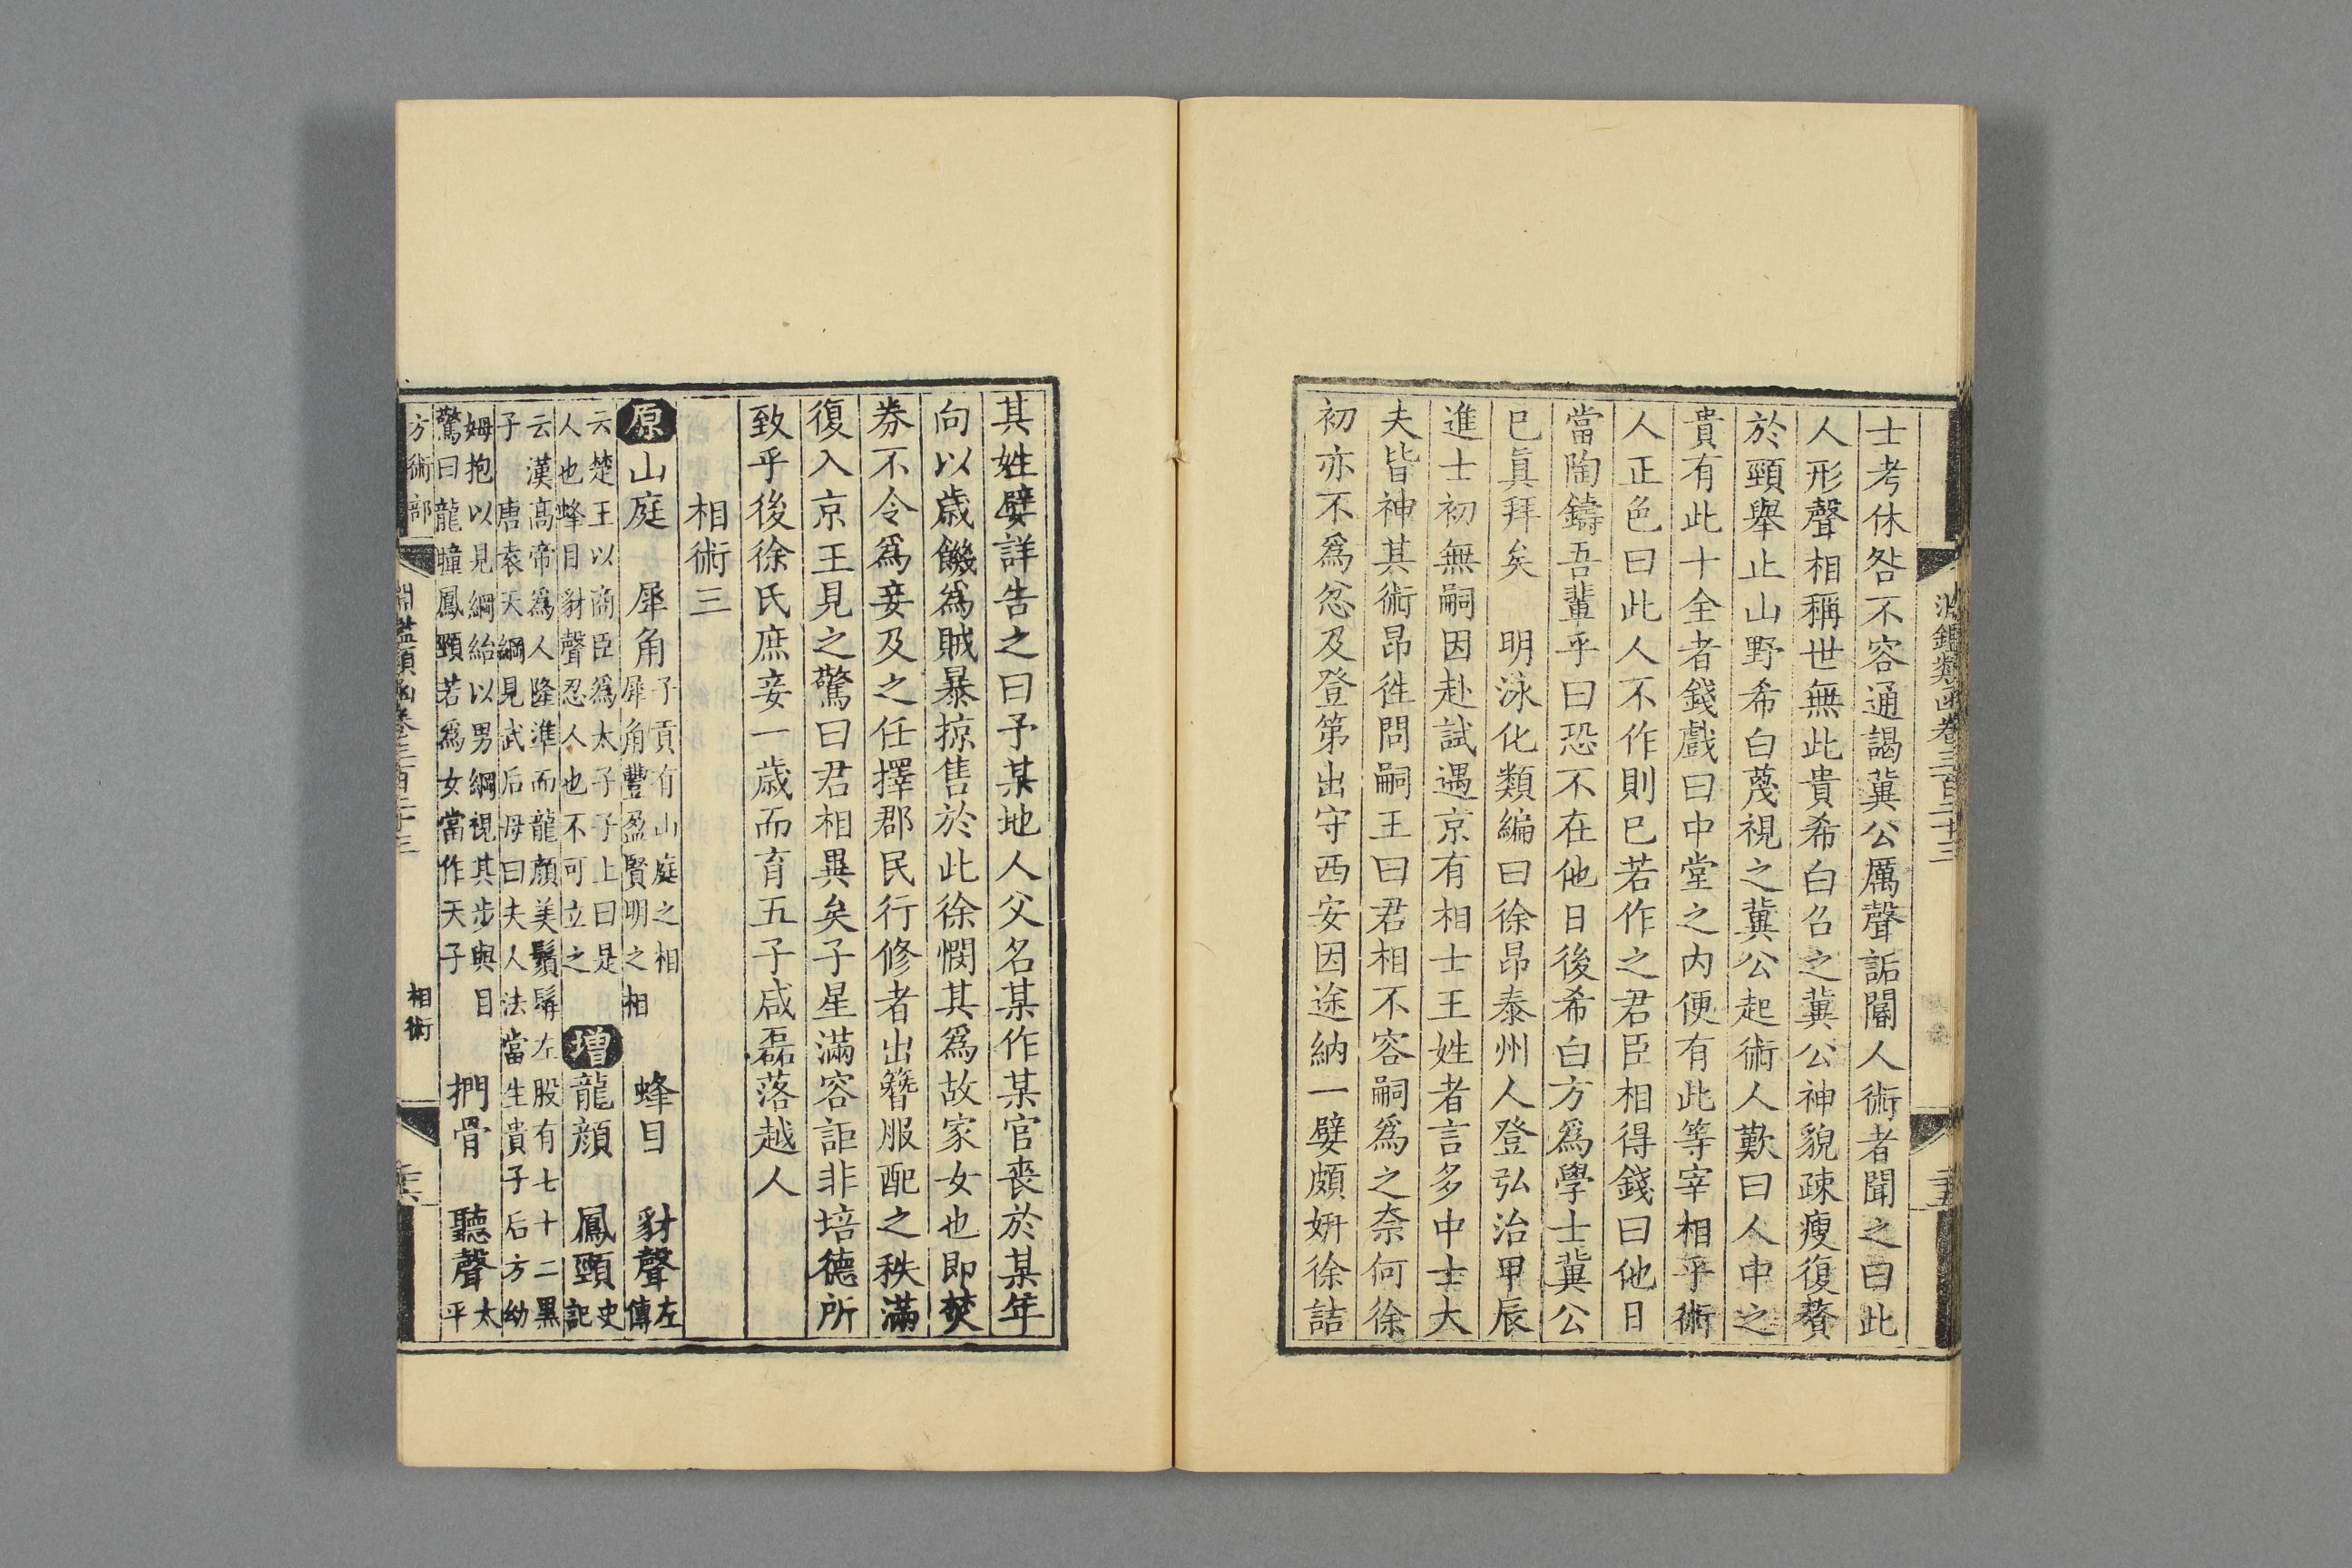 淵鑑類函卷三百二十三
二十五
士考休咎不容通謁冀公厲聲詬閽人術者聞之曰此
人形聲相稱世無此貴希白召之冀公神貌疎瘦復贅
於頸舉止山野希白蔑視之冀公起術人歎曰人中之
貴有此十全者錢戲曰中堂之内便有此等宰相乎術
人正色曰此人不作則已若作之君臣相得錢曰他日
當陶鑄吾輩乎曰恐不在他日後希白方爲學士冀公
已眞拜矣　明泳化類編曰徐昂泰州人登弘治甲辰
進士初無嗣因赴試遇京有相士王姓者言多中士大
夫皆神其術昂徃問嗣王曰君相不容嗣爲之奈何徐
初亦不爲忿及登第出守西安因途納一嬖頗妍徐詰
其姓嬖詳告之曰予某地人父名某作某官喪於某年
向以歳饑爲賊暴掠售於此徐憫其爲故家女也即焚
券不令爲妾及之任擇郡民行修者出簪服配之秩滿
復入京王見之驚曰君相異矣子星滿容詎非培德所
致乎後徐氏庶妾一歳而育五子咸磊落越人
相術三
原山庭　犀角子貢有山庭之相犀角豐盈賢明之相　蜂目　豺聲左傳
云楚王以商臣爲太子子上曰是人也蜂目豺聲忍人也不可立之　增龍顔　鳳頸史記
云漢高帝爲人隆準而龍顔美鬚髯左股有七十二黑子　唐袁天綱見武后母曰夫人法當生貴子后方幼
姆抱以見綱紿以男綱視其步與目驚曰龍瞳鳳頸若爲女當作天子　捫骨　聽聲太平
方術部
淵鑑類函卷三百二十三
相術
二十六